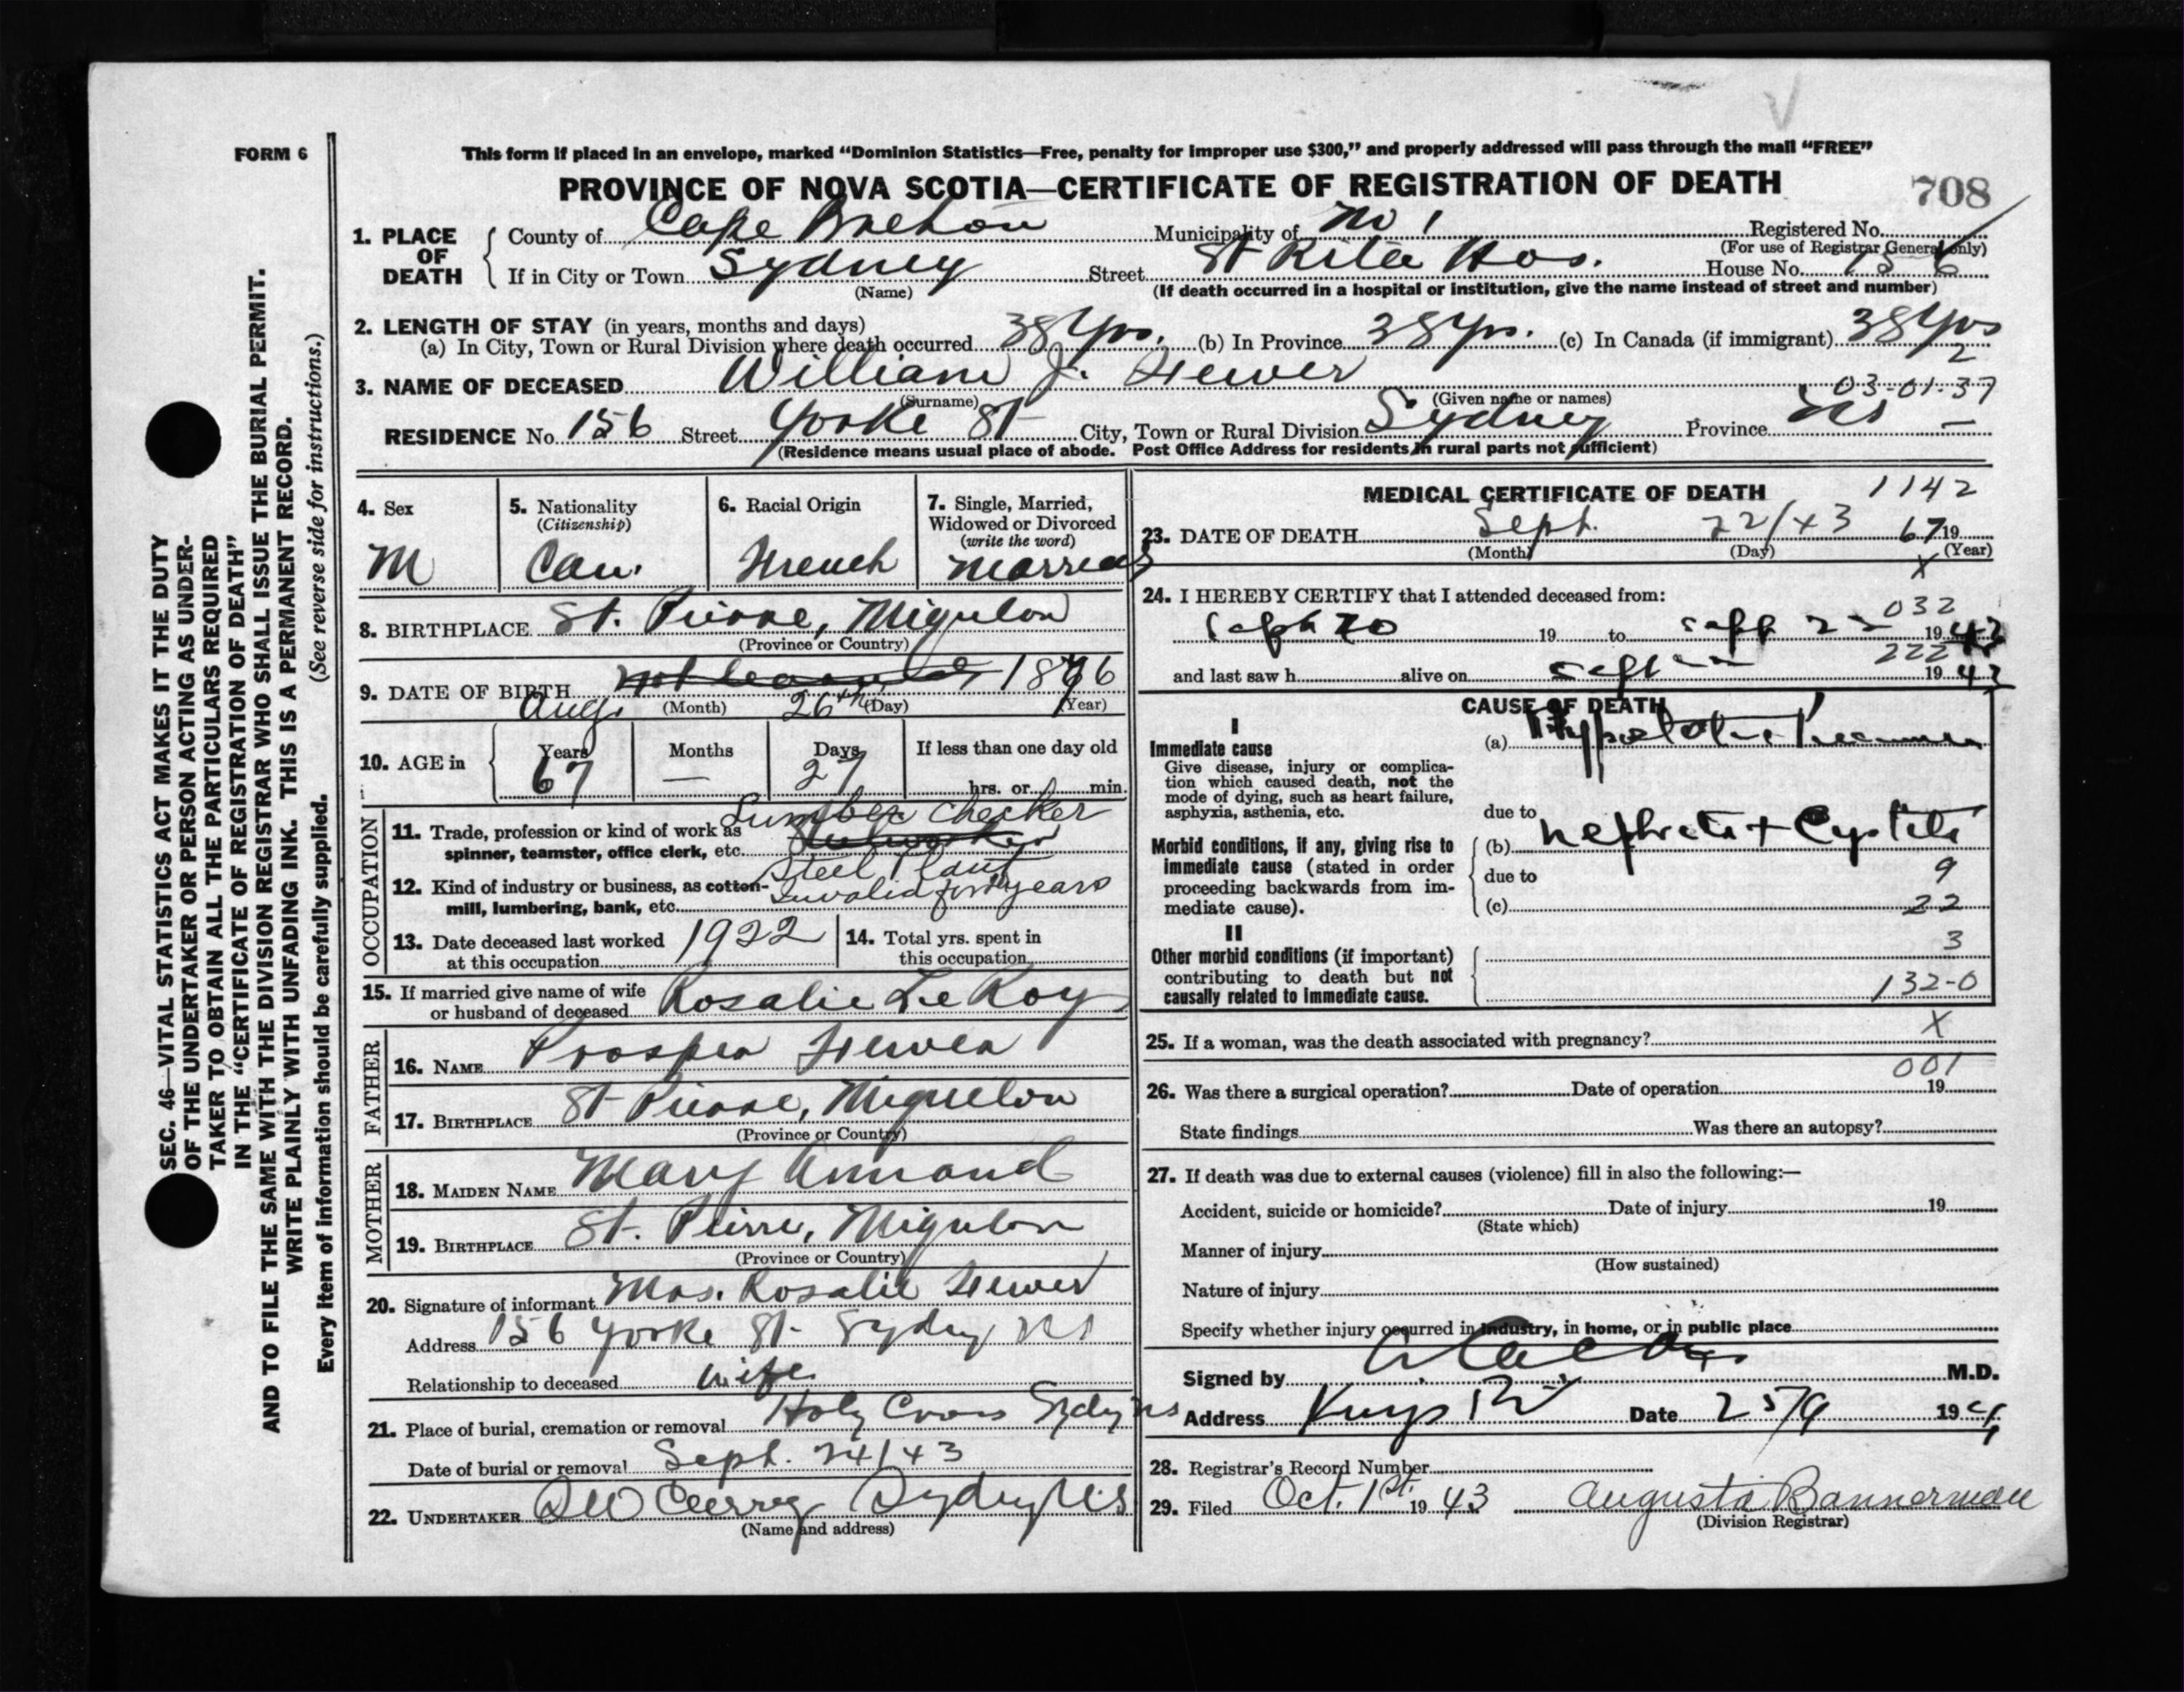 FORM 6
This form if placed in an envelope, marked “Dominion Statistics—Free, penalty for improper use $300,” and properly addressed will pass through the mail “FREE”
PROVINCE OF NOVA SCOTIA—CERTIFICATE OF REGISTRATION OF DEATH
708
1. PLACE OF DEATH
County of Cape Breton Municipality of No 1 Registered No.
(For use of Registrar General only)
If in City or Town Sydney Street St Rita Hos. House No. 156
(Name) (If death occurred in a hospital or institution, give the name instead of street and number)
2. LENGTH OF STAY (in years, months and days)
(a) In City, Town or Rural Division where death occurred 38 Yrs. (b) In Province 38 Yrs. (c) In Canada (if immigrant) 38 Yrs
2
3. NAME OF DECEASED William J. Hewer
03-01-37
(Surname) (Given name or names)
RESIDENCE No. 156 Street Yorke St City, Town or Rural Division Sydney Province NS —
(Residence means usual place of abode. Post Office Address for residents in rural parts not sufficient)
4. Sex
M
5. Nationality
(Citizenship)
Can.
6. Racial Origin
French
7. Single, Married,
Widowed or Divorced
(write the word)
Married
8. BIRTHPLACE St. Pierre, Miqulon
(Province or Country)
9. DATE OF BIRTH 1876
Aug. (Month) 26th (Day) (Year)
10. AGE in
Years
67
Months
—
Days
27
If less than one day old
hrs. or min.
OCCUPATION
Lumber Checker
11. Trade, profession or kind of work as
spinner, teamster, office clerk, etc.
Steel Plant
12. Kind of industry or business, as cotton-
mill, lumbering, bank, etc. Invalid for years
13. Date deceased last worked
at this occupation 1922
14. Total yrs. spent in
this occupation
15. If married give name of wife
or husband of deceased Rosalie Le Roy
FATHER
16. NAME Prosper Hewer
17. BIRTHPLACE St Pierre, Miquelon
(Province or Country)
MOTHER
18. MAIDEN NAME Mary Armand
19. BIRTHPLACE St. Peirre, Miqulon
(Province or Country)
20. Signature of informant Mrs. Rosalie Hewer
Address 156 Yorke St- Sydney NS
Relationship to deceased Wife
21. Place of burial, cremation or removal Holy Cross Sydney NS
Date of burial or removal Sept. 24/43
22. UNDERTAKER DW Curry Sydney N.S
(Name and address)
MEDICAL CERTIFICATE OF DEATH
1142
23. DATE OF DEATH Sept. 22/43 67 19
(Month) (Day) (Year)
X
24. I HEREBY CERTIFY that I attended deceased from:
032
Sept 20 19 to Sept 22 19 43
222
and last saw h alive on Sept 19 43
CAUSE OF DEATH
I
Immediate cause
Give disease, injury or complica-
tion which caused death, not the
mode of dying, such as heart failure,
asphyxia, asthenia, etc.
(a)
due to
Morbid conditions, if any, giving rise to
immediate cause (stated in order
proceeding backwards from im-
mediate cause).
(b) Nephritis + Cystitis
due to 9
(c) 22
II
Other morbid conditions (if important)
contributing to death but not
causally related to immediate cause.
3
132-0
X
25. If a woman, was the death associated with pregnancy?
001
26. Was there a surgical operation? Date of operation 19
State findings Was there an autopsy?
27. If death was due to external causes (violence) fill in also the following:—
Accident, suicide or homicide? Date of injury 19
(State which)
Manner of injury
(How sustained)
Nature of injury
Specify whether injury occurred in industry, in home, or in public place
Signed by M.D.
Address Date 25/9 19
28. Registrar's Record Number
29. Filed Oct. 1st. 19 43 Augusta Bannerman
(Division Registrar)
SEC. 46—VITAL STATISTICS ACT MAKES IT THE DUTY
OF THE UNDERTAKER OR PERSON ACTING AS UNDER-
TAKER TO OBTAIN ALL THE PARTICULARS REQUIRED
IN THE “CERTIFICATE OF REGISTRATION OF DEATH”
AND TO FILE THE SAME WITH THE DIVISION REGISTRAR WHO SHALL ISSUE THE BURIAL PERMIT.
WRITE PLAINLY WITH UNFADING INK. THIS IS A PERMANENT RECORD.
Every item of information should be carefully supplied. (See reverse side for instructions.)